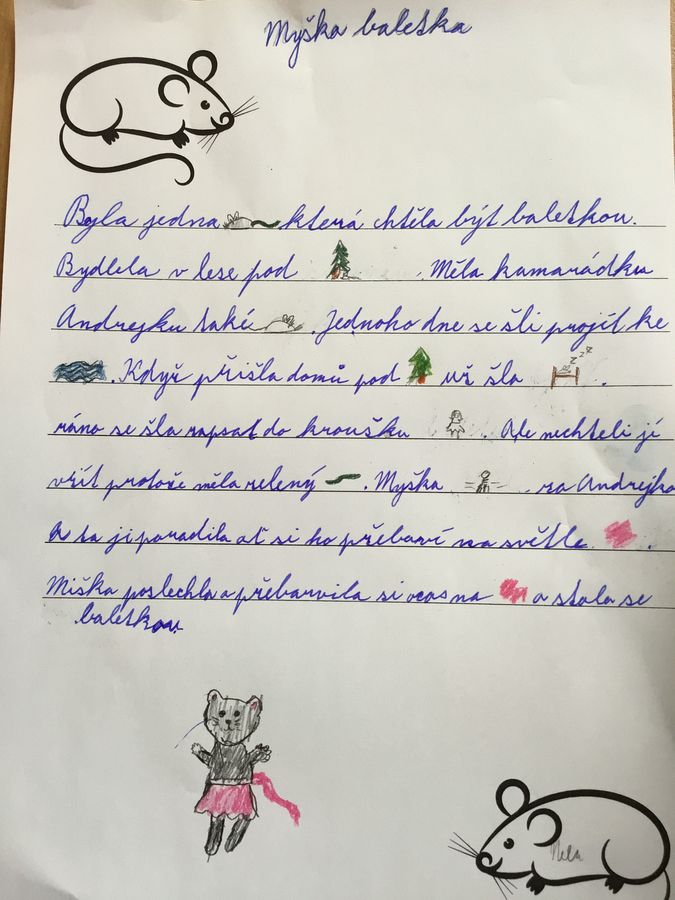 Myška baletka
Byla jedna která chtěla být baletkou.
Bydlela v lese pod . Měla kamarádku
Andrejku také . Jednoho dne se šli projít ke
. Když přišla domů pod už šla zzz .
ráno se šla zapsat do kroužku . Ale nechteli jí
vzít protože měla zelený . Myška za Andrejkou
A ta ji poradila ať si ho přebarví na světle .
Miška poslechla a přebarvila si ocas na a stala se
baletkou
Nela